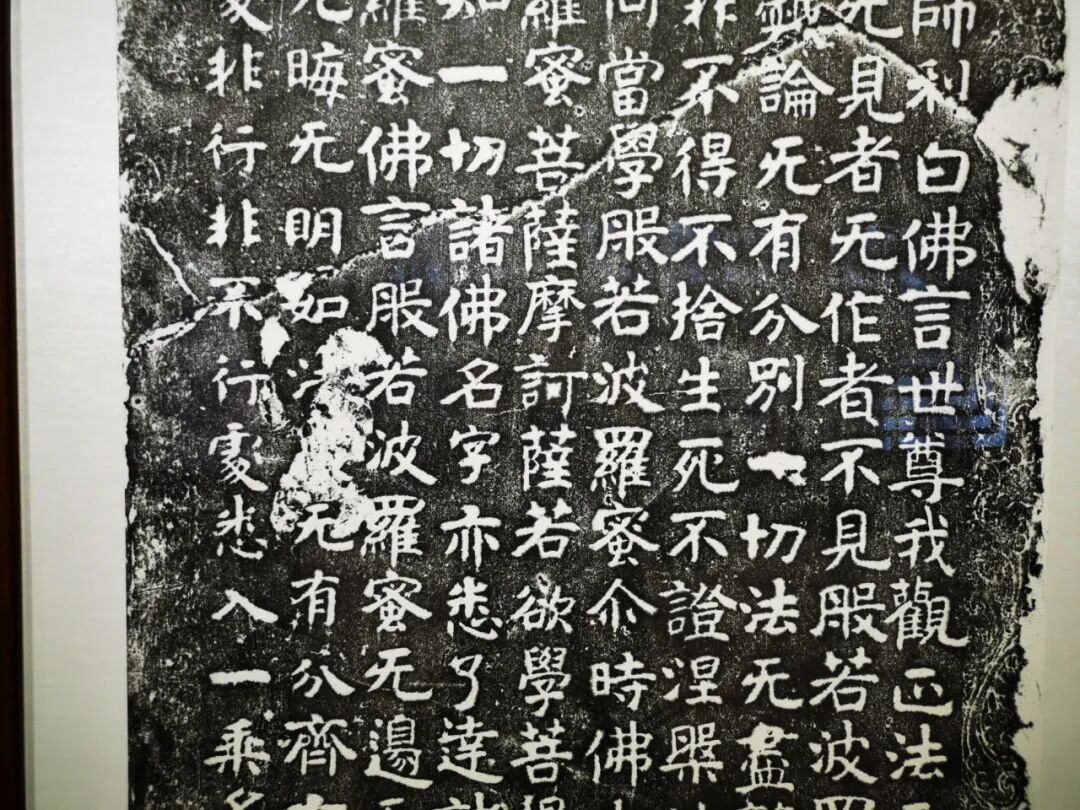 師利白佛言世尊我觀正法
无見者无作者不見般若波羅
戲論无有分別一切法无盡
非不得不捨生死不證涅槃
當學般若波羅蜜尒時佛
羅蜜菩薩摩訶薩若欲學菩提
知一切諸佛名字亦悉了達
羅蜜佛言般若波羅蜜无邊
无晦无明如法无有分齊
處非行非不行處悉入一乘